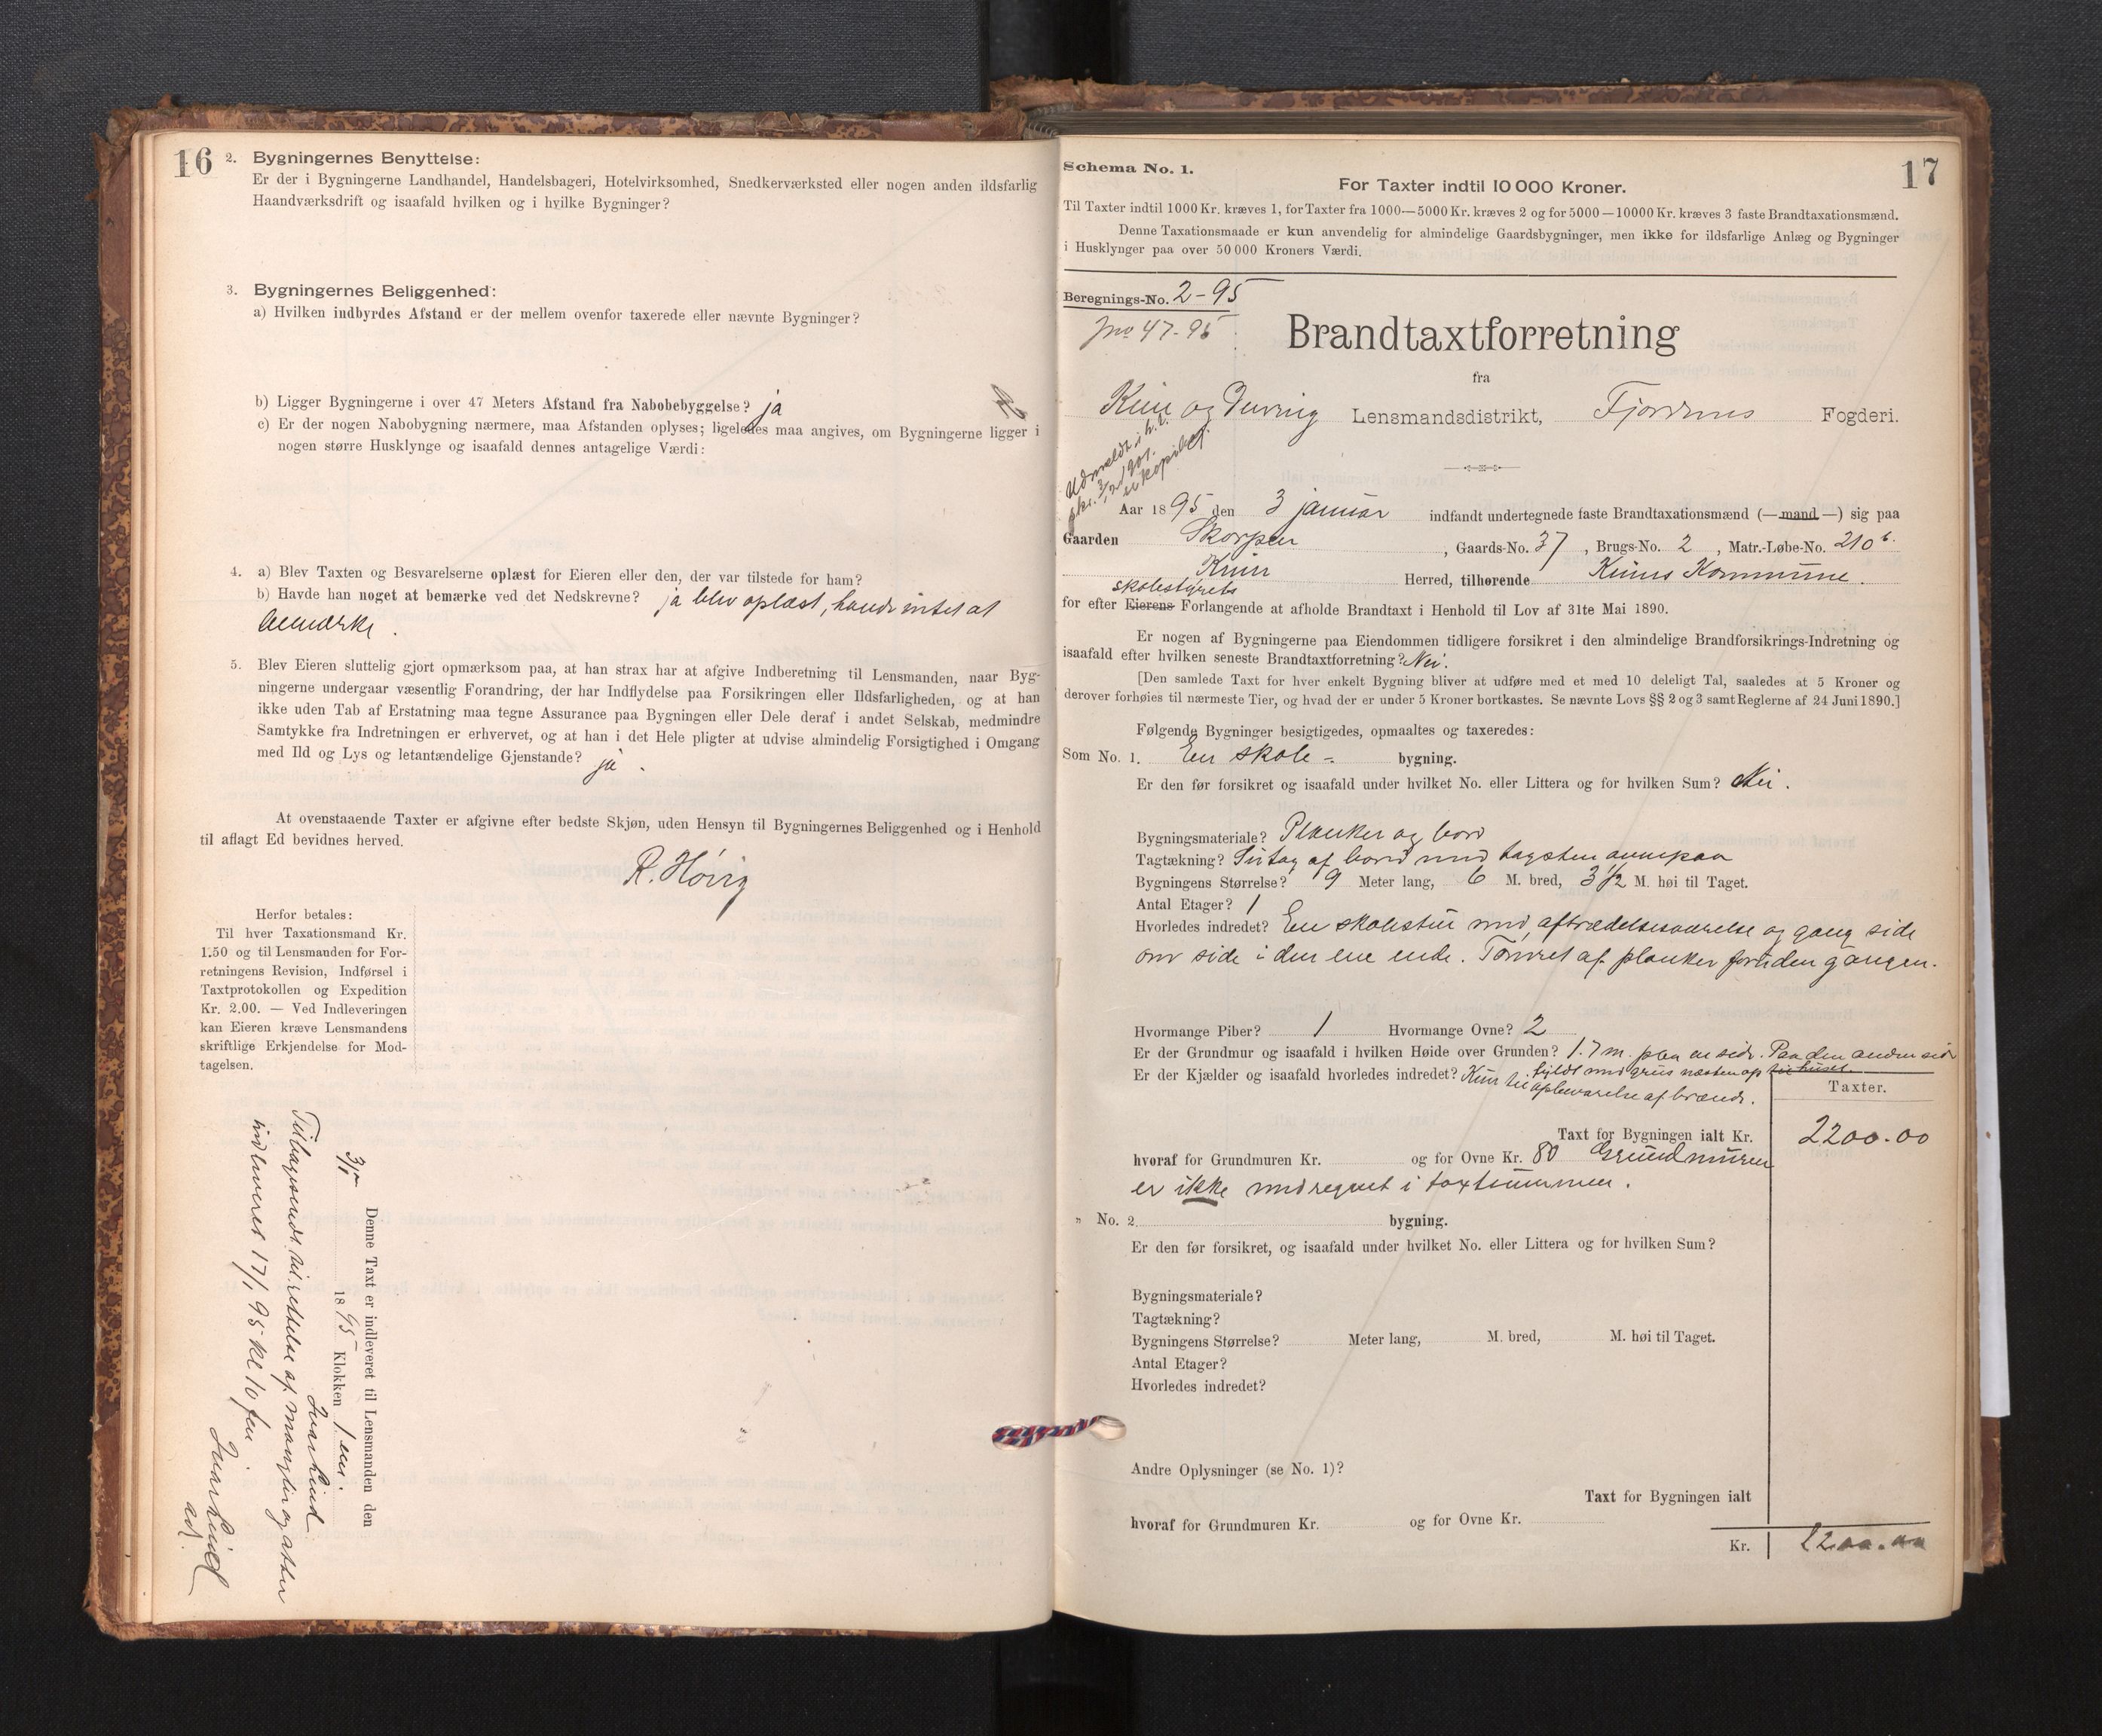 16
2. Bygningernes Benyttelse:
Er der i Bygningerne Landhandel, Handelsbageri, Hotelvirksomhed, Snedkerværksted eller nogen anden ildsfarlig
Haandværksdrift og isaafald hvilken og i hvilke Bygninger?
3. Bygningernes Beliggenhed:
a) Hvilken indbyrdes Afstand er der mellem ovenfor taxerede eller nævnte Bygninger?
b) Ligger Bygningerne i over 47 Meters Afstand fra Nabobebyggelse? ja
c) Er der nogen Nabobygning nærmere, maa Afstanden oplyses; ligeledes maa angives, om Bygningerne ligger i
nogen større Husklynge og isaafald dennes antagelige Værdi:
4. a) Blev Taxten og Besvarelserne oplæst for Eieren eller den, der var tilstede for ham?
b) Havde han noget at bemærke ved det Nedskrevne? ja blev oplæst, havde intet at
bemærke.
5. Blev Eieren sluttelig gjort opmærksom paa, at han strax har at afgive Indberetning til Lensmanden, naar Byg-
ningerne undergaar væsentlig Forandring, der har Indflydelse paa Forsikringen eller Ildsfarligheden, og at han
ikke uden Tab af Erstatning maa tegne Assurance paa Bygningen eller Dele deraf i andet Selskab, medmindre
Samtykke fra Indretningen er erhvervet, og at han i det Hele pligter at udvise almindelig Forsigtighed i Omgang
med Ild og Lys og letantændelige Gjenstande? ja.
At ovenstaaende Taxter er afgivne efter bedste Skjøn, uden Hensyn til Bygningernes Beliggenhed og i Henhold
til aflagt Ed bevidnes herved.
R. Høvig
Herfor betales:
Til hver Taxationsmand Kr.
1.50 og til Lensmanden for For-
retningens Revision, Indførsel i
Taxtprotokollen og Expedition
Kr. 2.00. — Ved Indleveringen
kan Eieren kræve Lensmandens
skriftlige Erkjendelse for Mod-
tagelsen.
Denne Taxt er indleveret til Lensmanden den
3/1 1895 Klokken 1 em.
Tilbagesendt til rettelse af mangler og atter
indleveret 17/1 95 kl 10 fm
17
Schema No. 1.
For Taxter indtil 10 000 Kroner.
Til Taxter indtil 1000 Kr. kræves 1, for Taxter fra 1000—5000 Kr. kræves 2 og for 5000—10000 Kr. kræves 3 faste Brandtaxationsmænd.
Denne Taxationsmaade er kun anvendelig for almindelige Gaardsbygninger, men ikke for ildsfarlige Anlæg og Bygninger
i Husklynger paa over 50 000 Kroners Værdi.
Beregnings-No. 2-95
Jno 47-95
Brandtaxtforretning
fra
Kinn og Lensmandsdistrikt, Fjordens Fogderi.
Aar 1895 den 3 januar indfandt undertegnede faste Brandtaxationsmænd (—mand—) sig paa
Gaarden Skorpen, Gaards-No. 37, Brugs-No. 2, Matr.-Løbe-No. 210 b.
Kinn Herred, tilhørende Kinns Kommune.
skolestyrets
for efter Eierens Forlangende at afholde Brandtaxt i Henhold til Lov af 31te Mai 1890.
Er nogen af Bygningerne paa Eiendommen tidligere forsikret i den almindelige Brandforsikrings-Indretning og
isaafald efter hvilken seneste Brandtaxtforretning? Nei.
[Den samlede Taxt for hver enkelt Bygning bliver at udføre med et med 10 deleligt Tal, saaledes at 5 Kroner og
derover forhøies til nærmeste Tier, og hvad der er under 5 Kroner bortkastes. Se nævnte Lovs §§ 2 og 3 samt Reglerne af 24 Juni 1890.]
Følgende Bygninger besigtigedes, opmaaltes og taxeredes:
Som No. 1. En skole- bygning.
Er den før forsikret og isaafald under hvilket No. eller Littera og for hvilken Sum? Nei.
Bygningsmateriale? Planker og bord
Tagtækning? Sutag af bord med tagsten ovenpaa
Bygningens Størrelse? 9 Meter lang, 6 M. bred, 3 1/2 M. høi til Taget.
Antal Etager? 1
Hvorledes indret? En skolestue med aftrædelsesværelse og gang side
om side i den ene ende. Tømret af planker foruden gangen.
Hvormange Piber? 1 Hvormange Ovne? 2
Er der Grundmur og isaafald i hvilken Høide over Grunden? 1.7 m. paa en side. Paa den anden side
fyldt med grus næsten op til huset.
Er der Kjælder og isaafald hvorledes indredet? Kun til opbevarelse af brænde.
Taxter.
Taxt for Bygningen ialt Kr. 2200.00
hvoraf for Grundmuren Kr. og for Ovne Kr. 80 Grundmuren
er ikke medregnet i taxtsummen.
" No. 2 bygning.
Er den før forsikret, og isaafald under hvilket No. eller Littera og for hvilken Sum?
Bygningsmateriale?
Tagtækning?
Bygningens Størrelse? Meter lang, M. bred, M. høi til Taget.
Antal Etager?
Hvorledes indredet?
Andre Oplysninger (se No. 1)?
Taxt for Bygningen ialt
hvoraf for Grundmuren Kr. og for Ovne Kr.
Kr. 2200.00